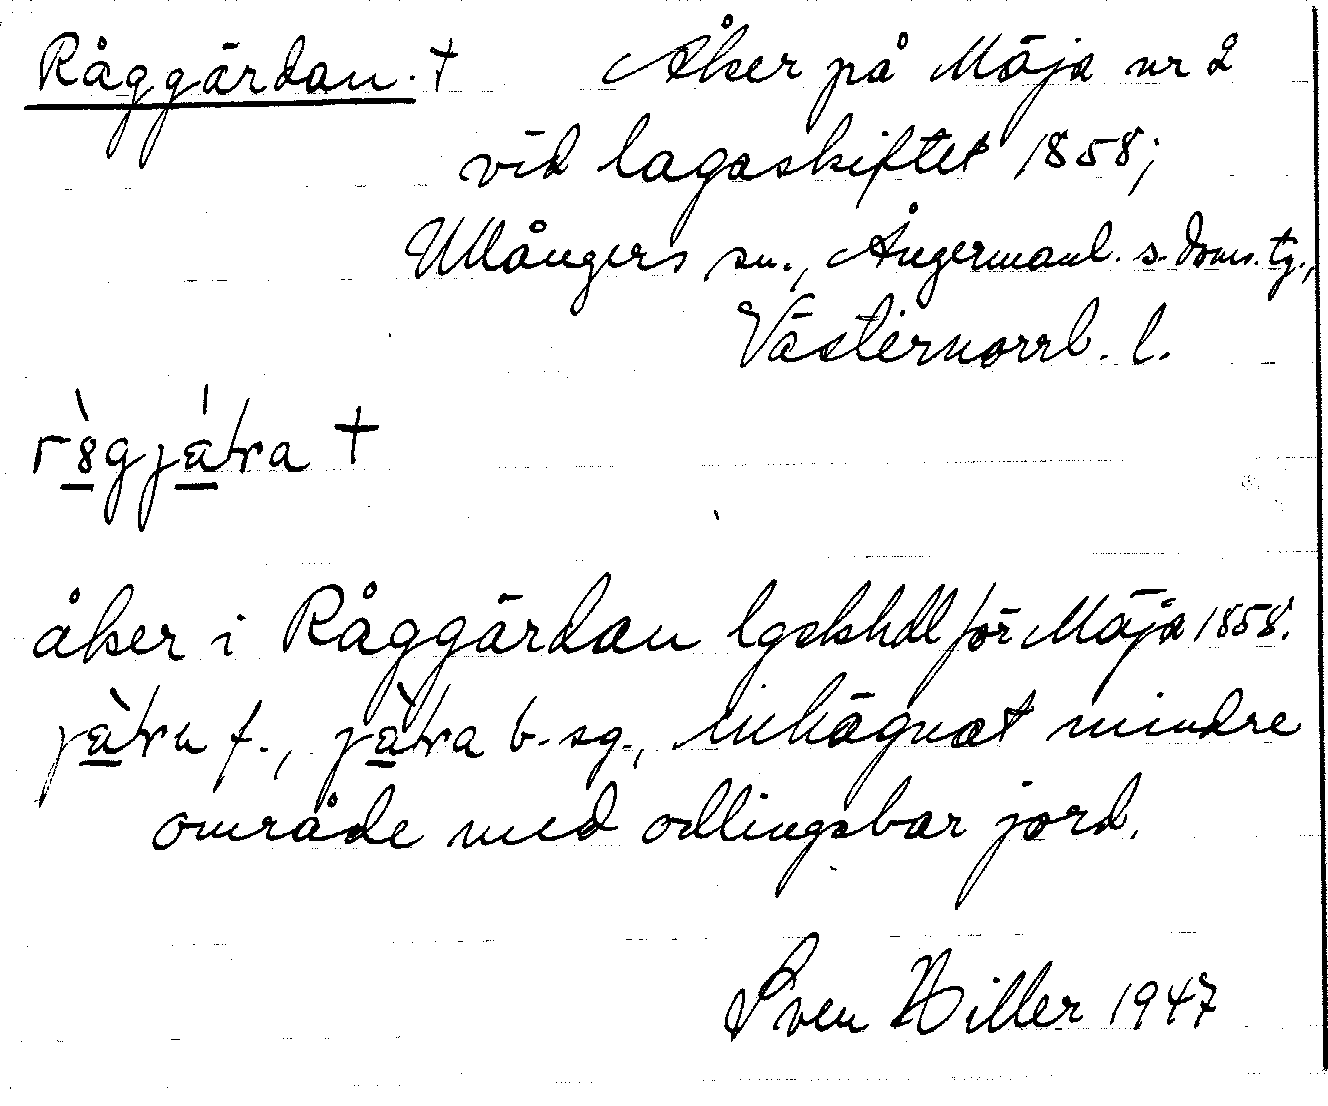 Råggärdan. † Åker på Mäja nr 2
vid lagaskiftet 1858;
Ullångers sn., Ångermanl. s. doms. tg.,
Västernorrl. l.
†
åker i Råggärdan lgskhdl för Mäja 1858.
f., b. sg., inhägnat mindre
område med odlingsbar jord.
Sven Hiller 1947